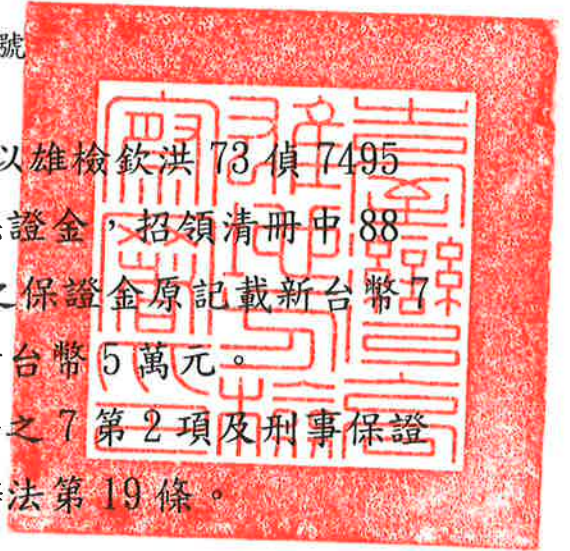 號
以雄檢欽洪 73 偵 7495
證金，招領清冊中 88
之保證金原記載新台幣 7
台幣 5 萬元。
之 7 第 2 項及刑事保證
法第 19 條。